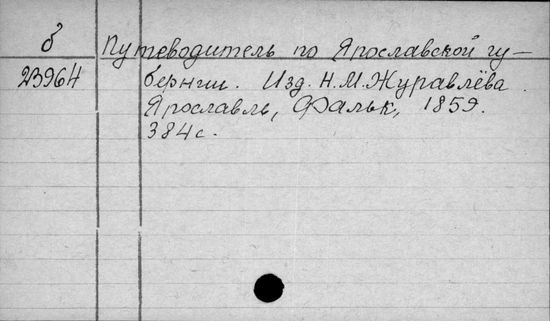 б
23964
Путеводитель по Ярославской гу-
бернии. Изд. Н.М.Журавлёва.
Ярославль, Фальк, 1859.
384 с.